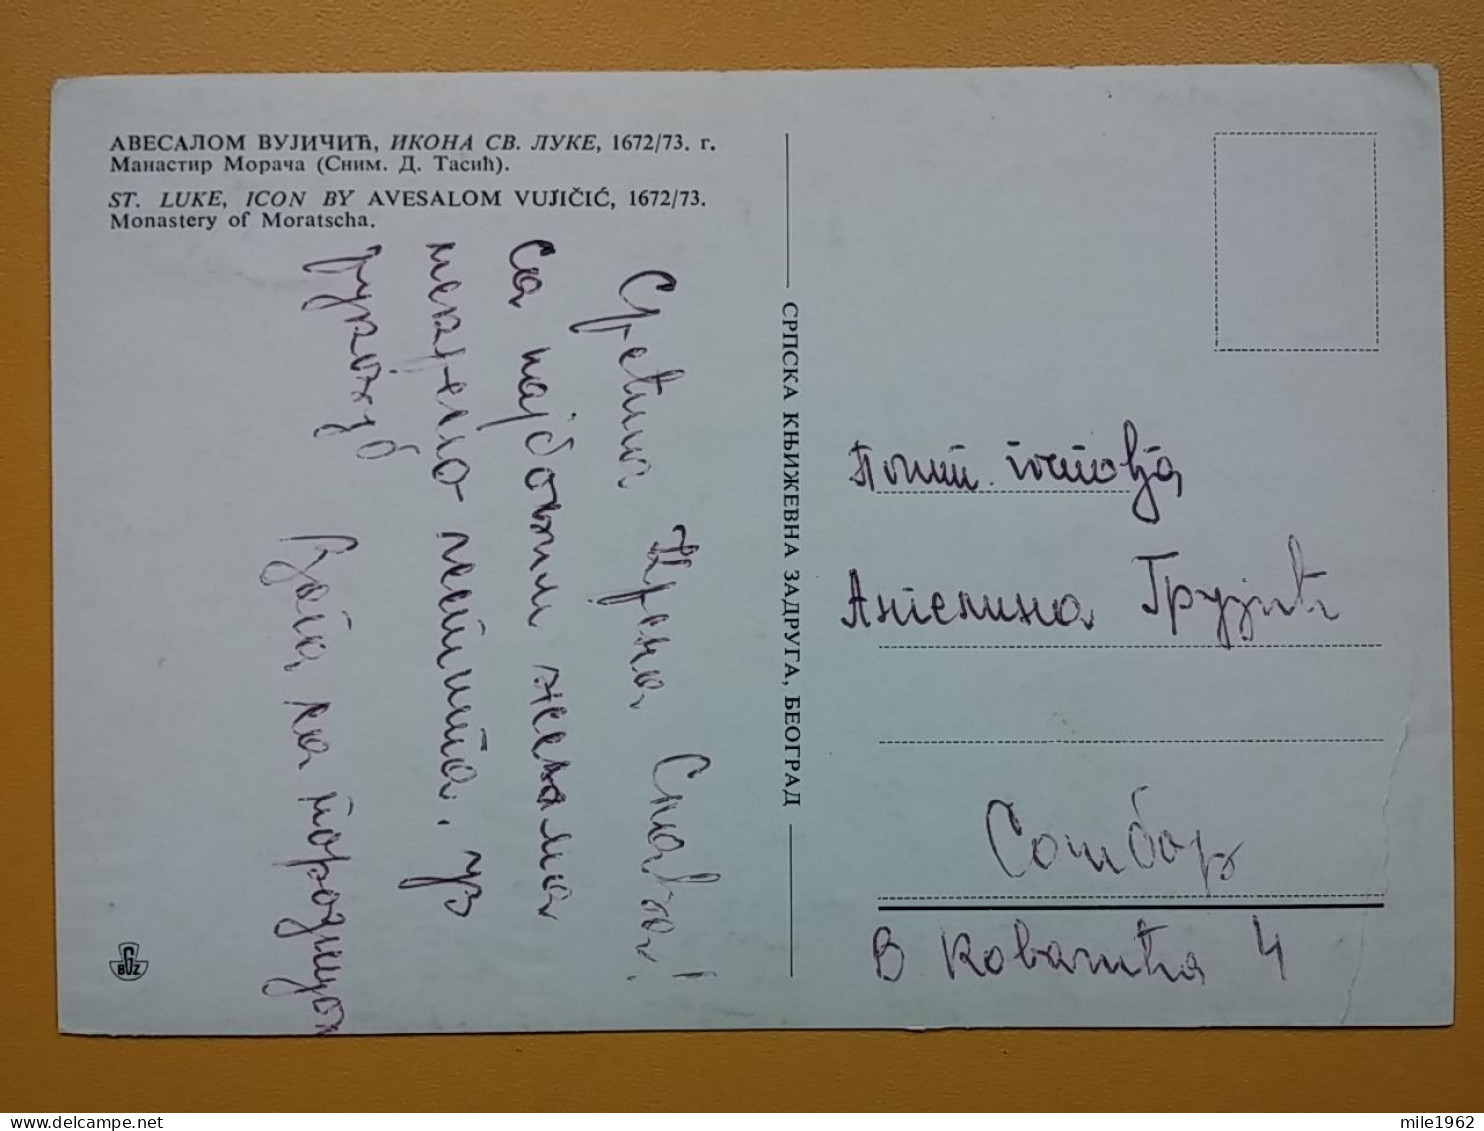 АВЕСАЛОМ ВУЈИЧИЋ, ИКОНА СВ. ЛУКЕ, 1672/73. г.
Манастир Морача (Сним. Д. Тасић).
ST. LUKE, ICON BY AVESALOM VUJIČIĆ, 1672/73.
Monastery of Moratscha.
Срећна Крсна Слава!
Са најбољим жељама
уз
са породицом
СРПСКА КЊИЖЕВНА ЗАДРУГА, БЕОГРАД
Пошт. госпођа
Ангелина Грујић
Сомбор
В Ковачића 4
BGZ
mile1962